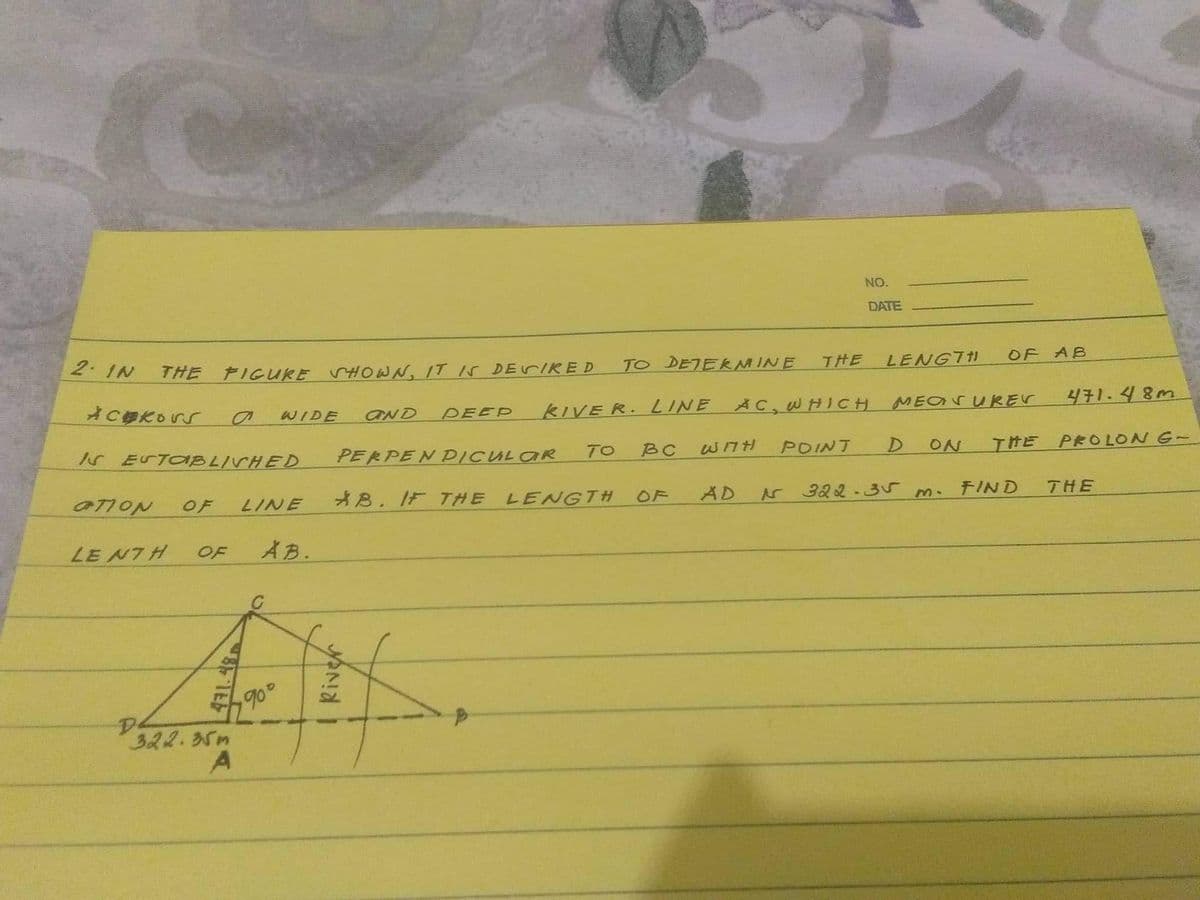 NO.
DATE
2. IN THE FIGURE SHOWN, IT IS DESIRED TO DETERMINE THE LENGTH OF AB
ACOROSS A WIDE AND DEEP RIVER. LINE AC, WHICH MEASURES 471.48m
IS ESTABLISHED PERPENDICULAR TO BC WITH POINT D ON THE PROLONG-
ATION OF LINE AB. IF THE LENGTH OF AD IS 322.35 m. FIND THE
LENTH OF AB.
C
471.48m
90°
River
D
B
322.35m
A